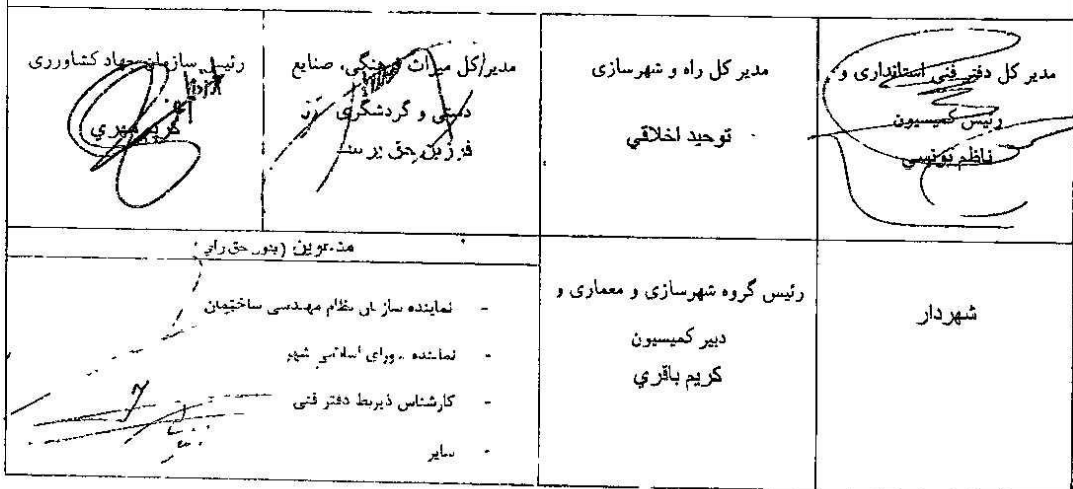 مدیر کل دفتر فنی استانداری و
رئیس کمیسیون
ناظم یونسي
مدیر کل راه و شهرسازی
توحید اخلاقي
مدیر کل میراث فرهنگی، صنایع
دستی و گردشگری
فرزین حق پرست
رئیس سازمان جهاد کشاورزی
مهري
رئیس گروه شهرسازی و معماری و
دبیر کمیسیون
کریم باقري
شهردار
مدعوین (بدون حق رای)
- نماینده سازمان نظام مهندسی ساختمان
- نماینده شورای اسلامی شهر
- کارشناس ذیربط دفتر فنی
- سایر